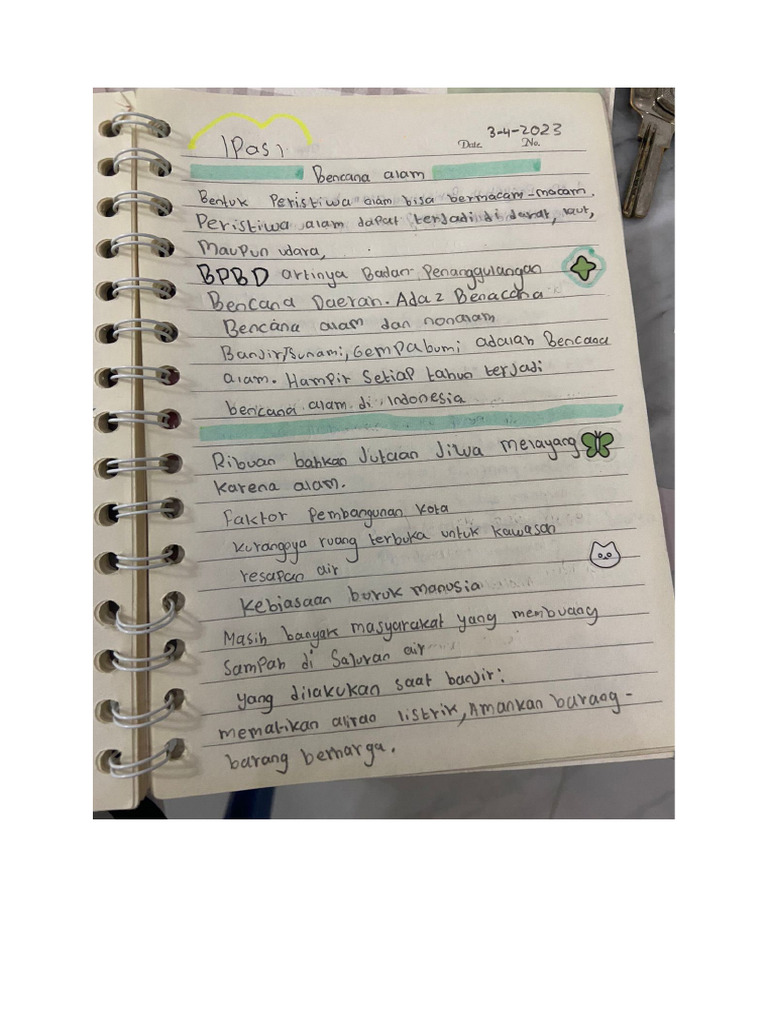 IPas
Date 3-4-2023
No.
Bencana alam
Bentuk Peristiwa alam bisa bermacam-macam.
Peristiwa alam dapat terjadi di darat, laut,
Maupun udara,
BPBD artinya Badan Penanggulangan
Bencana Daerah. Ada 2 Benaccna
Bencana alam dan nonalam
Banjir, Tsunami, Gempabumi adalah Bencana
alam. Hampir Setiap tahun terjadi
bencana alam di Indonesia
Ribuan bahkan Jutaan Jiwa merayang
karena alam.
Faktor Pembangunan Kota
kurangnya ruang terbuka untuk kawasan
resapan air
kebiasaan buruk manusia
Masih banyak masyarakat yang membuang
Sampah di Saluran air
yang dilakukan saat banjir:
mematikan aliran listrik, Amankan barang-
barang berharga.